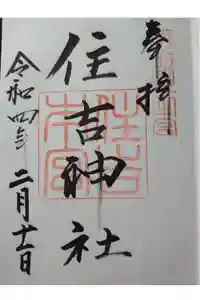 奉拝
住吉神社
令和四年
二月十一日